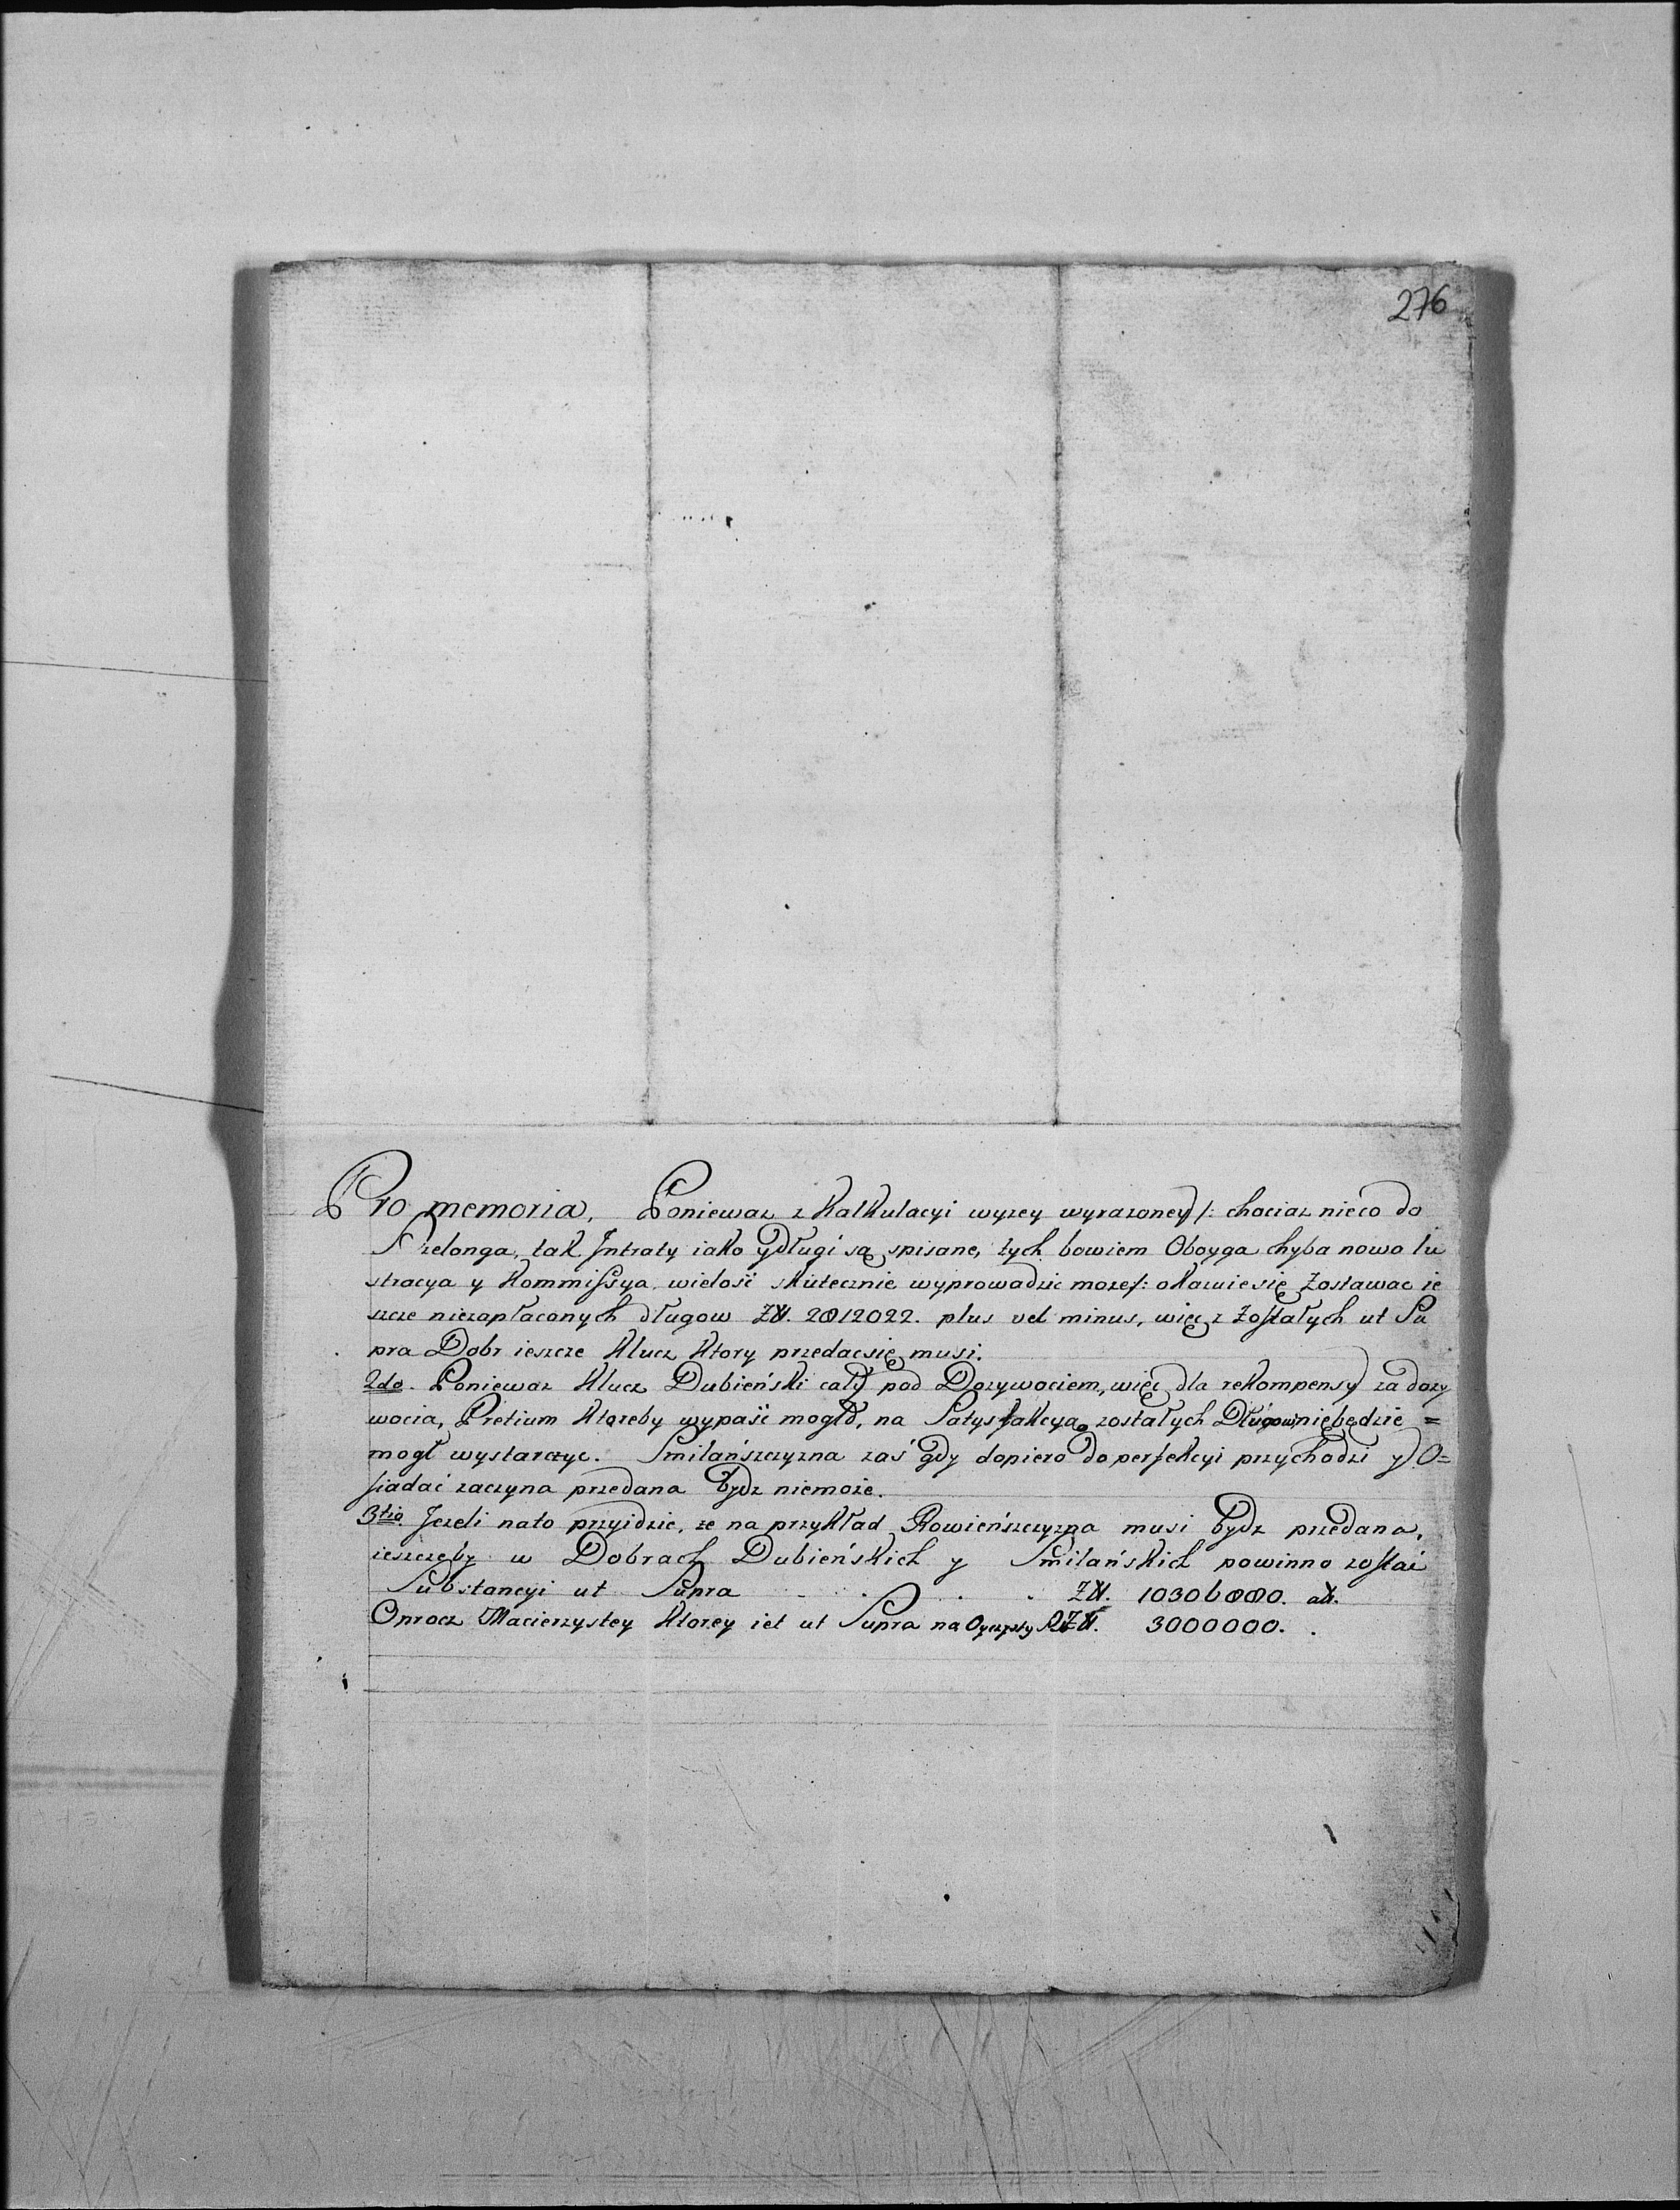 276
Pro memoria, Poniewaz z Kalkulacyi wyzey wyrazoney /: chociaz nieco do
Przelonga, tak Intraty iako y długi są spisane, tych bowiem Oboyga chyba nowa lu
stracya y Kommissya wielość skutecznie wyprowadzic moze /: okazuie się zostawac ie
szcze niezapłaconych długow Zł. 2812022. plus vel minus, więc z zostałych ut Su
pra Dobr ieszcze Klucz Ktory przedac się musi.
2do. Poniewaz Klucz Dubieński cały pod Dozywociem, więc dla rekompensy za dozy
wocia, Pretium Ktoreby wypaść mogło, na Satysfakcyą zostałych Długow niebędzie =
mogł wystarczyc. Smilańszczyzna zaś gdy dopiero do perfekcyi przychodzi y O=
siadać zaczyna przedana bydz niemoże.
3tio. Jezeli nato przyidzie, ze na przykład Rowieńszczyzna musi bydz przedana,
ieszczeby w Dobrach Dubieńskich y Smilańskich powinno zostać
Substancyi ut Supra . . . Zł. 10306880.
Oprocz Macierzystey Ktorey iet ut Supra na Oyczysty Zł. 3000000.